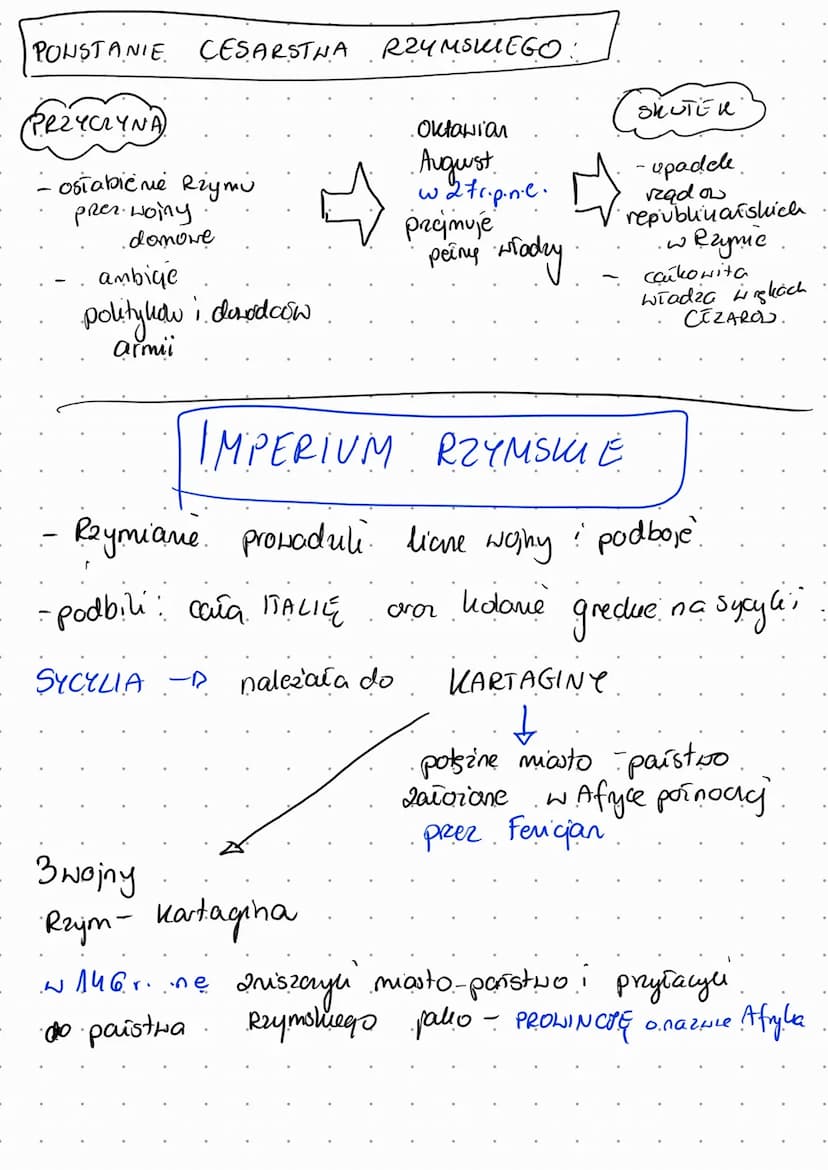 POWSTANIE CESARSTWA RZYMSKIEGO:
PRZYCZYNA
- osłabienie Rzymu
przez wojny
domowe
- ambicje
polityków i dowódców
armii
Oktawian
August
w 27r.p.n.e.
przejmuje
pełnię władzy
SKUTEK
- upadek
rządów
republikańskich
w Rzymie
- całkowita
władza w rękach
CEZARÓW.
IMPERIUM RZYMSKIE
- Rzymianie prowadzili liczne wojny i podboje
- podbili: całą ITALIĘ oraz kolonie greckie na Sycylii
SYCYLIA → należała do KARTAGINY
potężne miasto - państwo
założone w Afryce północnej
przez Fenicjan
3 wojny
Rzym - Kartagina
w 146 r. ne zniszczyli miasto-państwo i przyłączyli
do państwa Rzymskiego jako - PROWINCJĘ o nazwie Afryka